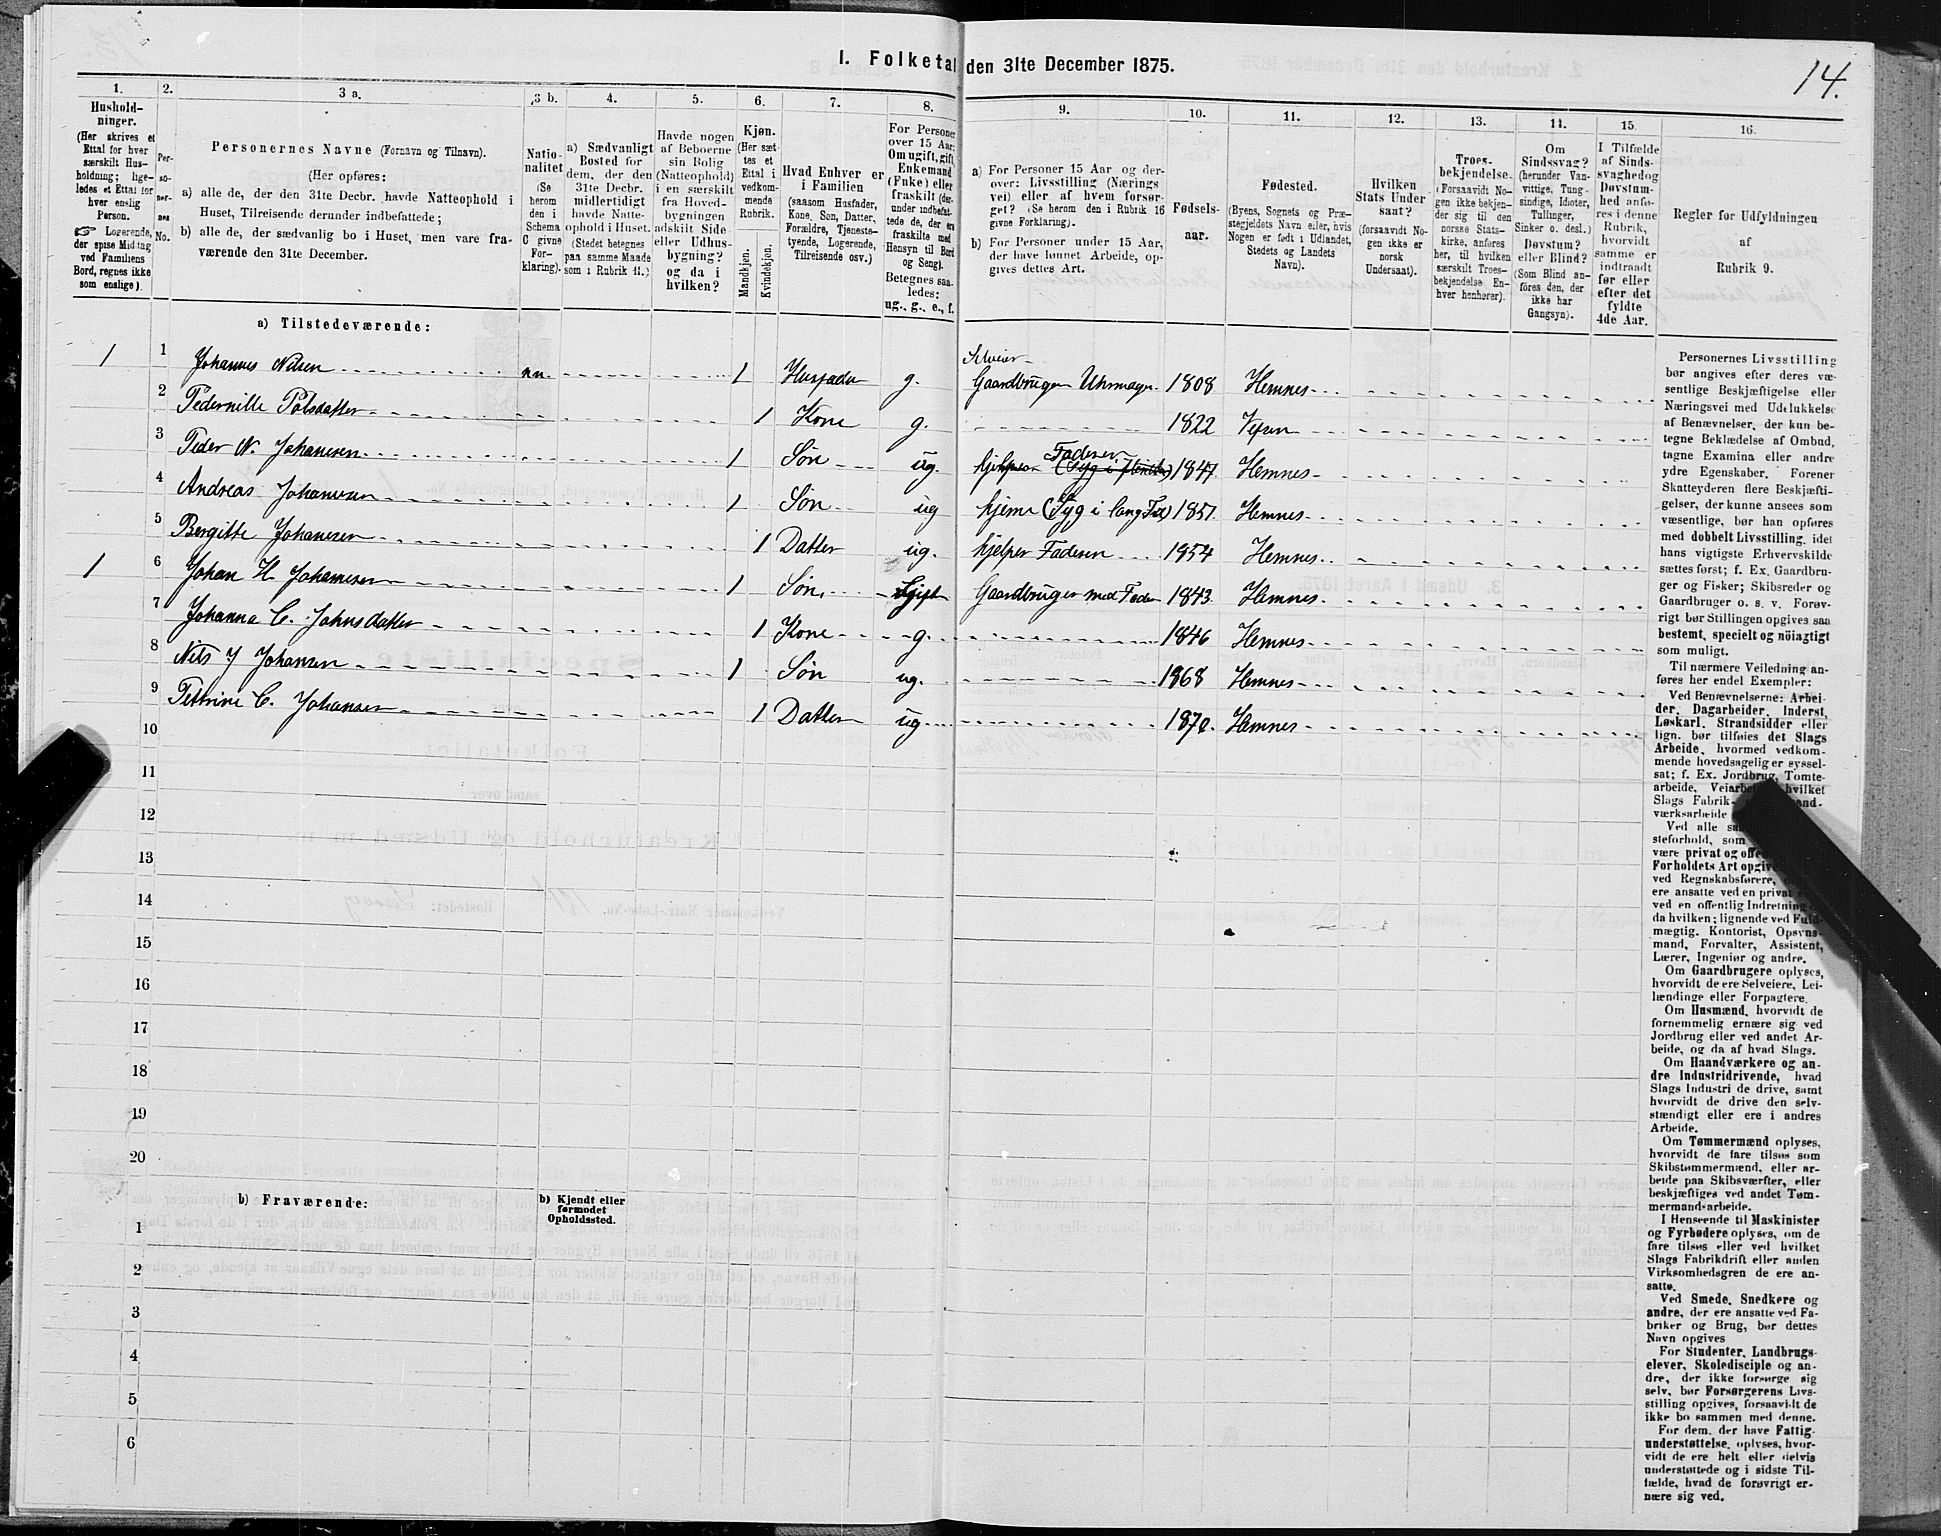 14.
I. Folketal den 31te December 1875.
1. 2. 3 a. 3 b. 4. 5. 6. 7. 8. 9. 10. 11. 12. 13. 14. 15. 16.
Hushold-
ninger.
(Her skrives et
Ettal for hver
særskilt Hus-
holdning; lige-
ledes et Ettal for
hver enslig
Person.
☞ Logerende,
der spise Middag
ved Familiens
Bord, regnes ikke
som enslige).
Per-
so-
ner-
nes
No.
Personernes Navne (Fornavn og Tilnavn).
(Her opføres:
a) alle de, der den 31te Decbr. havde Natteophold i
Huset, Tilreisende derunder indbefattede;
b) alle de, der sædvanlig bo i Huset, men vare fra-
værende den 31te December.
Natio-
nalitet
(Se
herom
den i
Schema
C givne
For-
klaring).
a) Sædvanligt
Bosted for
dem, der den
31te Decbr.
midlertidigt
havde Natte-
ophold i Huset.
(Stedet betegnes
paa samme Maade
som i Rubrik 11.)
Havde nogen
af Beboerne
sin Bolig
(Natteophold)
i en særskilt
fra Hoved-
bygningen
adskilt Side-
eller Udhus-
bygning?
og da i
hvilken?
Kjøn.
(Her sæt-
tes et
Ettal i
vedkom-
mende
Rubrik.
Mandkjøn.
Kvindekjøn.
Hvad Enhver er
i Familien
(saasom Husfader,
Kone, Søn, Datter,
Forældre, Tjeneste-
tyende, Logerende,
Tilreisende osv.)
For Personer
over 15 Aar:
Om ugift, gift,
Enkemand
(Enke) eller
fraskilt (der-
under indbefat-
tede de, der ere
fraskilte med
Hensyn til Bord
og Seng).
Betegnes saa-
ledes:
ug., g., e., f.
a) For Personer 15 Aar og der-
over: Livsstilling (Nærings-
vei) eller af hvem forsør-
get? (Se herom den i Rubrik 16
givne Forklaring).
b) For Personer under 15 Aar,
der have lønnet Arbeide, op-
gives dettes Art.
Fødsels-
aar.
Fødested.
(Byens, Sognets og Præ-
stegjeldets Navn eller, hvis
Nogen er født i Udlandet,
Stedets og Landets
Navn).
Hvilken
Stats Under-
saat?
(forsaavidt No-
gen ikke er
norsk
Undersaat).
Troes-
bekjendelse.
(Forsaavidt No-
gen ikke bekjen-
der sig til den
norske Stats-
kirke, anføres
her, til hvilken
særskilt Troes-
bekjendelse En-
hver henhører).
Om
Sindssvag?
(herunder Van-
vittige, Tung-
sindige, Idioter,
Tullinger,
Sinker o. desl.)
Døvstum?
eller Blind?
(Som Blind an-
føres den, der
ikke har
Gangsyn).
I Tilfælde
af Sinds-
svaghed og
Døvstum-
hed anfø-
res i denne
Rubrik,
hvorvidt
samme er
indtraadt
før eller
efter det
fyldte
4de Aar.
Regler for Udfyldningen
af
Rubrik 9.
a) Tilstedeværende:
1 1 Johannes Nilsen nn. 1 Husfader g. Selveier Gaardbruger Uhrmager 1808 Hemnes
2 Pedernille Pålsdatter 1 Kone g. 1822 Vefsen
3 Peder N. Johannesen 1 Søn ug. hjelper Faderen 1847 Hemnes
4 Andreas Johannesen 1 Søn ug hjeme (Syg i lang Tid) 1851. Hemnes
5 Bergitte Johanesen 1 Datter ug. hjelper Faderen 1854 Hemnes
1 6 Johan H. Johannesen 1 Søn gift Gaardbruger med Fader 1843 Hemnes
7 Johanna C. Johnsdatter 1 Kone g. 1846 Hemnes
8 Nils J Johansen 1 Søn ug. 1868 Hemnes
9 Pettrine C. Johansen 1 Datter ug. 1870. Hemnes
10
11
12
13
14
15
16
17
18
19
20
b) Fraværende:
b) Kjendt eller
formodet
Opholdssted.
1
2
3
4
5
6
Personernes Livsstilling
bør angives efter deres væ-
sentlige Beskjæftigelse eller
Næringsvei med Udelukkelse
af Benævnelser, der kun be-
tegne Beklædelse af Ombud,
tagne Examina eller andre
ydre Egenskaber. Forener
Skatteyderen flere Beskjæfti-
gelser, der kunne ansees som
væsentlige, bør han opføres
med dobbelt Livsstilling, idet
hans vigtigste Erhvervskilde
sættes først; f. Ex. Gaardbru-
ger og Fisker; Skibsreder og
Gaardbruger o. s. v. Forøv-
rigt bør Stillingen opgives saa
bestemt, specielt og nöiagtigt
som muligt.
Til nærmere Veiledning an-
føres her endel Exempler:
Ved Benævnelserne: Arbei-
der, Dagarbeider, Inderst,
Løskarl, Strandsidder eller
lign. bør tilføies det Slags
Arbeide, hvormed vedkom-
mende hovedsagelig er syssel-
sat; f. Ex. Jordbrug, Tomte-
arbeide, Veiarbei hvilket
Slags Fabrik- and-
værksarbeide
Ved alle
steforhold, som
være privat og offe
Forholdets Art opgiv
ved Regnskabsførere,
ere ansatte ved en privat
ved en offentlig Indretning
da hvilken; lignende ved Fuld-
mægtig, Kontorist, Opsyns-
mand, Forvalter, Assistent,
Lærer, Ingeniør og andre.
Om Gaardbrugere oplyses,
hvorvidt de ere Selveiere, Lei-
lændinge eller Forpagtere.
Om Husmænd, hvorvidt de
fornemmelig ernære sig ved
Jordbrug eller ved andet Ar-
beide, og da af hvad Slags.
Om Haandværkere og an-
dre Industridrivende, hvad
Slags Industri de drive, samt
hvorvidt de drive den selv-
stændigt eller ere i andres
Arbeide.
Om Tømmermænd oplyses,
hvorvidt de fare tilsøs som
Skibstømmermænd, eller ar-
beide paa Skibsværfter, eller
beskjæftiges ved andet Tøm-
mermandsarbeide.
I Henseende til Maskinister
og Fyrbødere oplyses, om de
fare tilsøs eller ved hvilket
Slags Fabrikdrift eller anden
Virksomhedsgren de ere an-
satte.
Ved Smede, Snedkere og
andre, der ere ansatte ved Fa-
briker og Brug, bør dettes
Navn opgives
For Studenter, Landbrugs-
elever, Skoledisciple og an-
dre, der ikke forsørge sig
selv, bør Forsørgerens Livs-
stilling opgives, forsaavidt de
ikke bo sammen med denne.
For dem, der have Fattig-
understøttelse, oplyses, hvor-
vidt de ere helt eller delvis
understøttede og i sidste Til-
fælde, hvad de forøvrigt er-
nære sig ved.